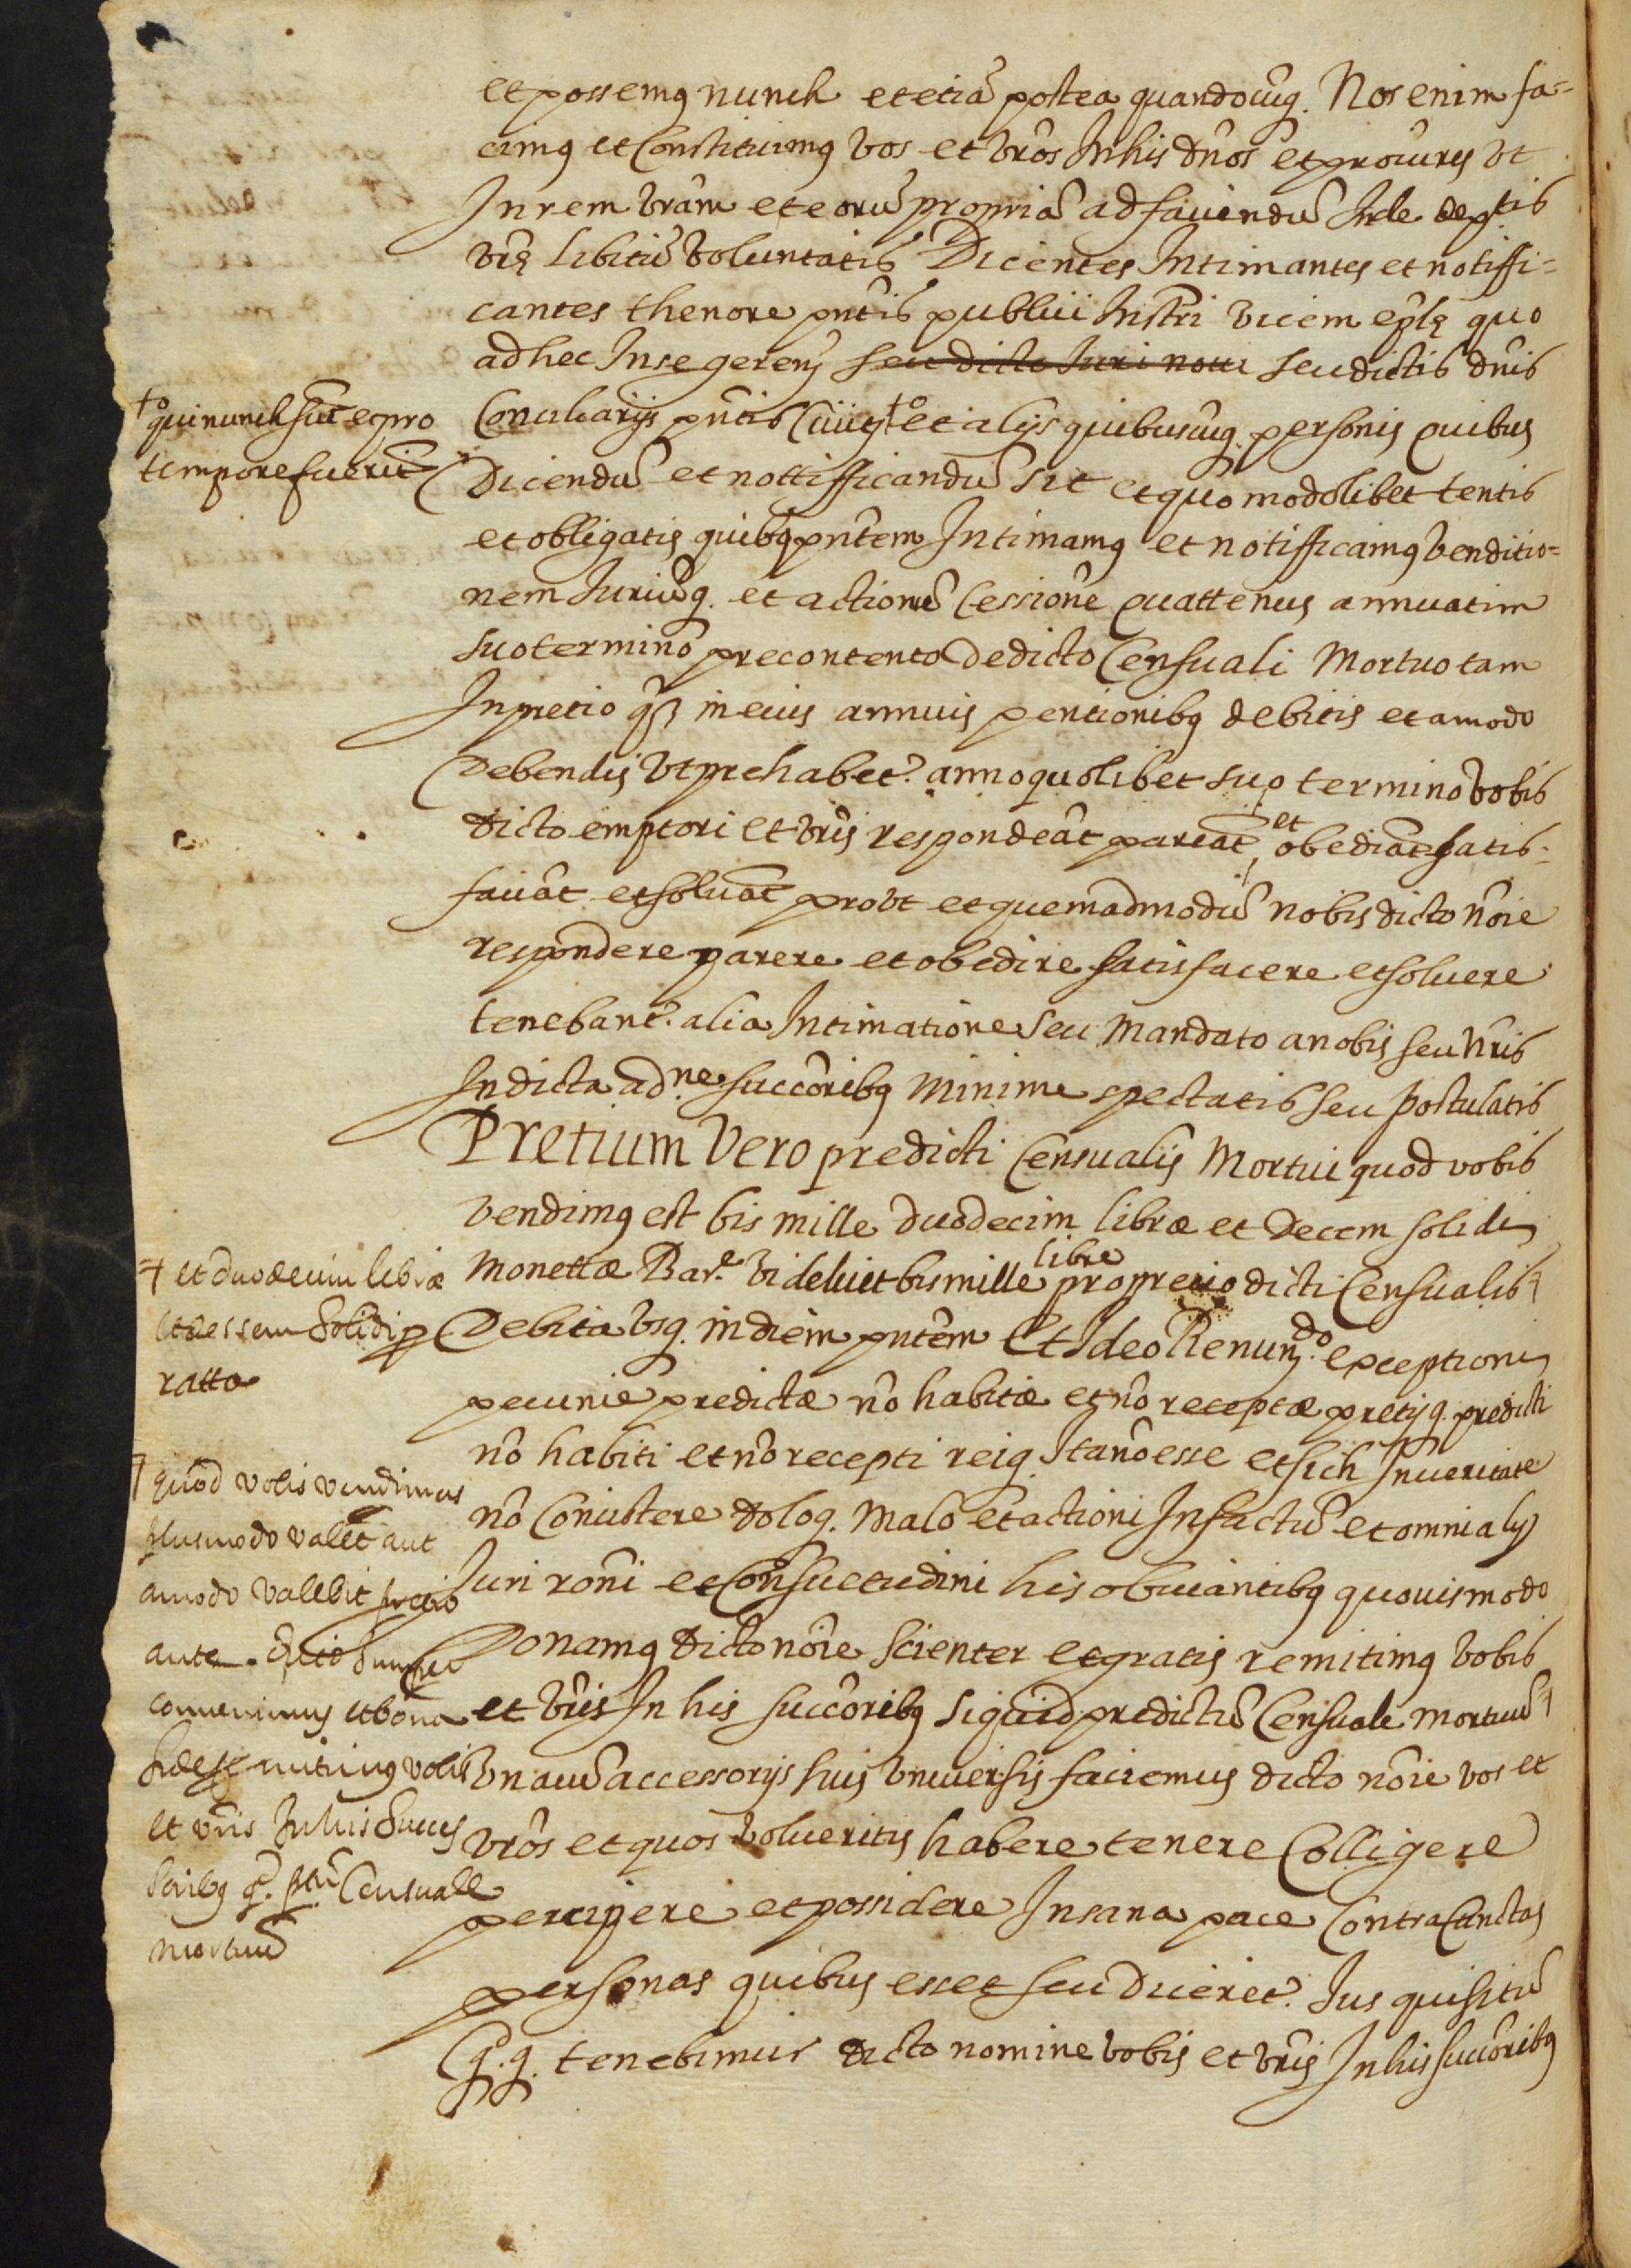 et possemꝯ nunch et etiã postea quandocũqȝ. Nos enim fa=
cimꝯ et Constituimꝯ vos et vr̃os In his dños et procũres vt
In rem vrãm et eorũ propriã ad faciendũ Inde de p.tis
vrę libitũ voluntatis Dicentes Intimantes et notiffi=
cantes thenore pñtis publici Instri vicem eplę quo
ad hec In se gerens seu dicto Iuri notu seu dictis dñis
Conciliarijs pñtis Ciuits ╪o et alijs quibuscũqȝ. personis quibus
Dicendũ et nottifficandũ sit et quomodolibet tentis
et obligatis quibꝯ pñtem Intimamꝯ et notifficamꝯ venditio=
nem Iuriũqȝ. et actionũ Cessionẽ quattenus annuatim
suo termino precontento de dicto Censuali Mortuo tam
In pretio qȝ in eius annuis pentionibꝯ debitis et amodo
Debendis vt prehabet.r anno quolibet suo termino vobis
dicto emptori et vr̃is respondeãt pareãt et obediãt satis=
faciãt et soluãt provt et quemadmodũ nobis dicto nõie
respondere parere et obedire satisfacere et soluere
tenebant.r alia Intimatione seu Mandato a nobis seu nr̃is
In dicta ad.ne succõribꝯ minime spectatis seu postulatis
Pretium vero predicti Censualis Mortui quod vobis
vendimꝯ est bis mille duodecim libræ et Decem solidi
Monettæ Bar.e videlicet bis mille libre pro precio dicti Censualis ╕
Debita vsqȝ. in diem pñtem Et Ideo Renun.do exceptioni
pecunie predictæ nõ habitæ et nõ receptæ pretijqȝ. predicti
nõ habiti et nõ recepti reiqȝ. Ita nõ esse et sich In ueritate
nõ Consistere doloqȝ. Malo et actioni In factũ et omni alij
Iuri rõni et Consuetudini his obuiantibꝯ quouismodo
Donamꝯ dicto nõie scienter et gratis remitimꝯ vobis
et vr̃is In his succõribꝯ siquid predictũ Censuale mortuũ ╕
Vna cũ accessorijs suis vniuersis faciemus dicto nõie vos et
vr̃os et quos volueritis habere tenere Colligere
percipere et possidere In sana pace Contra Cunctas
personas quibus esset seu Diceret.r Ius quisitũ
Q.qȝ. tenebimur dicto nomine vobis et vr̃is In his succõribꝯ
╪o qui nunch sũt et pro
tempore fuerint
╕ et duodecim libræ
et dessem solidi p
ratta
╕ quod vobis vendimus
plus modo valet aut
amodo valebit precio
ante.
conuenimus et bona
fide remitimꝯ vobis
et vr̃is In his succes
soribꝯ q. ptũ Censuale
mortuũ